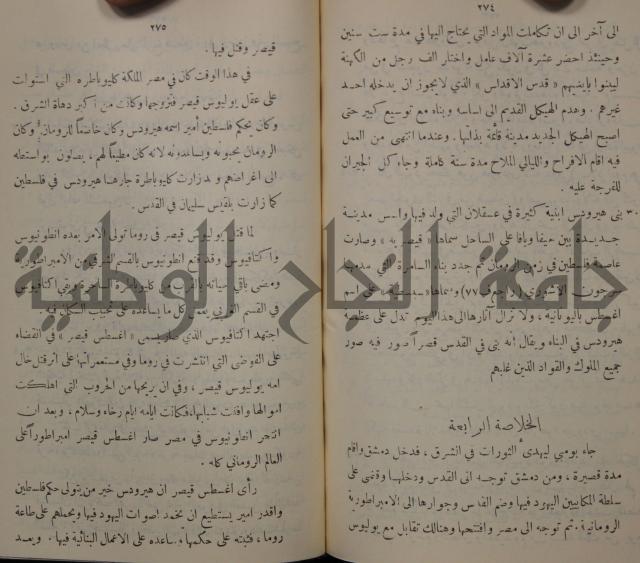 ٢٧٤
الى آخر الى ان تكاملت المواد التي يحتاج اليها في مدة ست سنين
وحينئذ احضر عشرة آلاف عامل واختار الف رجل من الكهنة
ليبنوا بايديهم « قدس الاقداس » الذي لايجوز ان يدخله احد
غيرهم . وهدم الهيكل القديم الى اساسه وبناه مع توسيع كبير حتى
اصبح الهيكل الجديد مدينة قائمة بذاتها . وعندما انتهى من العمل
فيه اقام الافراح والليالي الملاح مدة سنة كاملة وجاء كل الجيران
للفرجة عليه .
٣٠ بنى هيرودس ابنية كثيرة في عسقلان التي ولد فيها واسس مدينة
جديدة بين حيفا ويافا على الساحل سماها « قيصريه » وصارت
عاصمة فلسطين في زمن الرومان ثم جدد بناء السامرة التي هدمها
سرجون الاشوري ( راجع ف ٧٧) وسماها « سبسطية » على اسم
اغسطس باليونانية ، ولا تزال آثارها الى هذا اليوم تدل على عظمة
هيرودس في البناء ويقال أنه بنى في القدس قصراً صور فيه صور
جميع الملوك والقواد الذين غلبهم
الخلاصة الرابعة
جاء بومبي ليهدىء الثورات في الشرق ، فدخل دمشق واقام
مدة قصيرة ، ومن دمشق توجه الى القدس ودخلها وقضى على
سلطة المكابيين اليهود فيها وضم القدس وجوارها الى الامبراطورية
الرومانية . ثم توجه الى مصر وافتتحها وهنالك تقابل مع يوليوس
٢٧٥
قيصر وقتل فيها .
في هذا الوقت كان في مصر الملكة كليوباطره التي استولت
على عقل يوليوس قيصر فتزوجها وكانت من اكبر دهاة الشرق .
وكان يحكم فلسطين أمير اسمه هيرودس وكان خاضعاً للرومان وكان
الرومان يحبونه ويساعدونه لانه كان مطيعاً لهم ، يصلون بواسطته
الى اغراضهم وقد زارت كليوباطرة جارها هيرودس في فلسطين
كما زارت بلقيس سليمان في القدس .
لما قتل يوليوس قيصر في روما تولى الامر بعده انطونيوس
واكتافيوس وقد قنع انطونيوس بالقسم الشرقي من الامبراطورية
ومضى باقي حياته بالقرب من كليوباطرة الساحرة وبقي اكتافيوس
في القسم الغربي يعمل كل ما يساعده على تحبيب السكان فيه
اجتهد اكتافيوس الذي صار يسمى « اغسطس قيصر » في القضاء
على الفوضى التي انتشرت في روما وفي مستعمراتها على اثر قتل خال
امه يوليوس قيصر ، وفي ان يريحها من الحروب التي اهلكت
اموالها وافنت شبابها، فكانت ايامه ايام رخاء وسلام ، وبعد ان
انتحر انطونيوس في مصر صار اغسطس قيصر امبراطوراً على
العالم الروماني كله .
رأى اغسطس قيصر ان هيرودس خير من يتولى حكم فلسطين
واقدر امير يستطيع ان يخمد اصوات اليهود فيها ويحملهم على طاعة
روما ، فثبته على حكمها وساعده على الاعمال البنائية فيها . وبعد
جامعة النجاح الوطنية